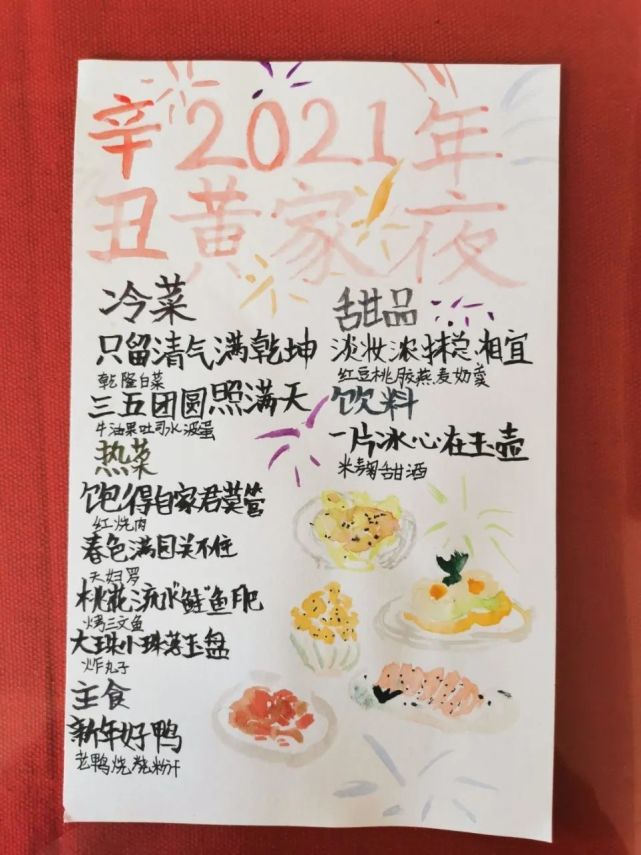 辛2021年
丑黄家夜
冷菜
只留清气满乾坤
乾隆白菜
三五团圆照满天
牛油果吐司水波蛋
热菜
饱得自家君莫管
红烧肉
春色满园关不住
天妇罗
桃花流水鲑鱼肥
烤三文鱼
大珠小珠落玉盘
炸丸子
主食
新年好鸭
老鸭烧烧粉汁
甜品
淡妆浓抹总相宜
红豆桃胶燕麦奶羹
饮料
一片冰心在玉壶
米麹甜酒